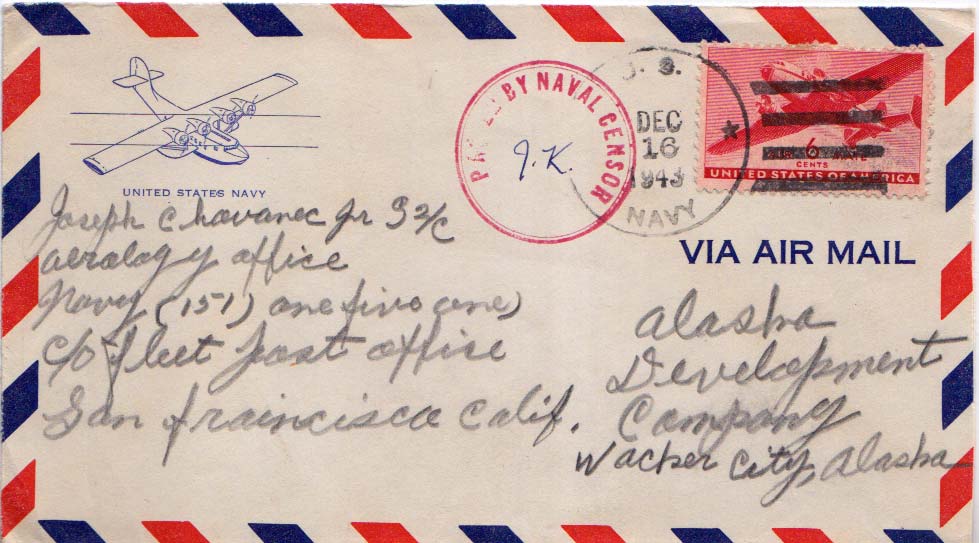 UNITED STATES NAVY
Joseph Chavanec Jr S2/C
aerology office
Navy (151) one five one)
c/o fleet post office
San fraincisco Calif.
PASSED BY NAVAL CENSOR
J.K.
U. S.
DEC
16
1943
NAVY
6
CENTS
UNITED STATES OF AMERICA
VIA AIR MAIL
alaska
Development
Company
Wacker City, Alaska